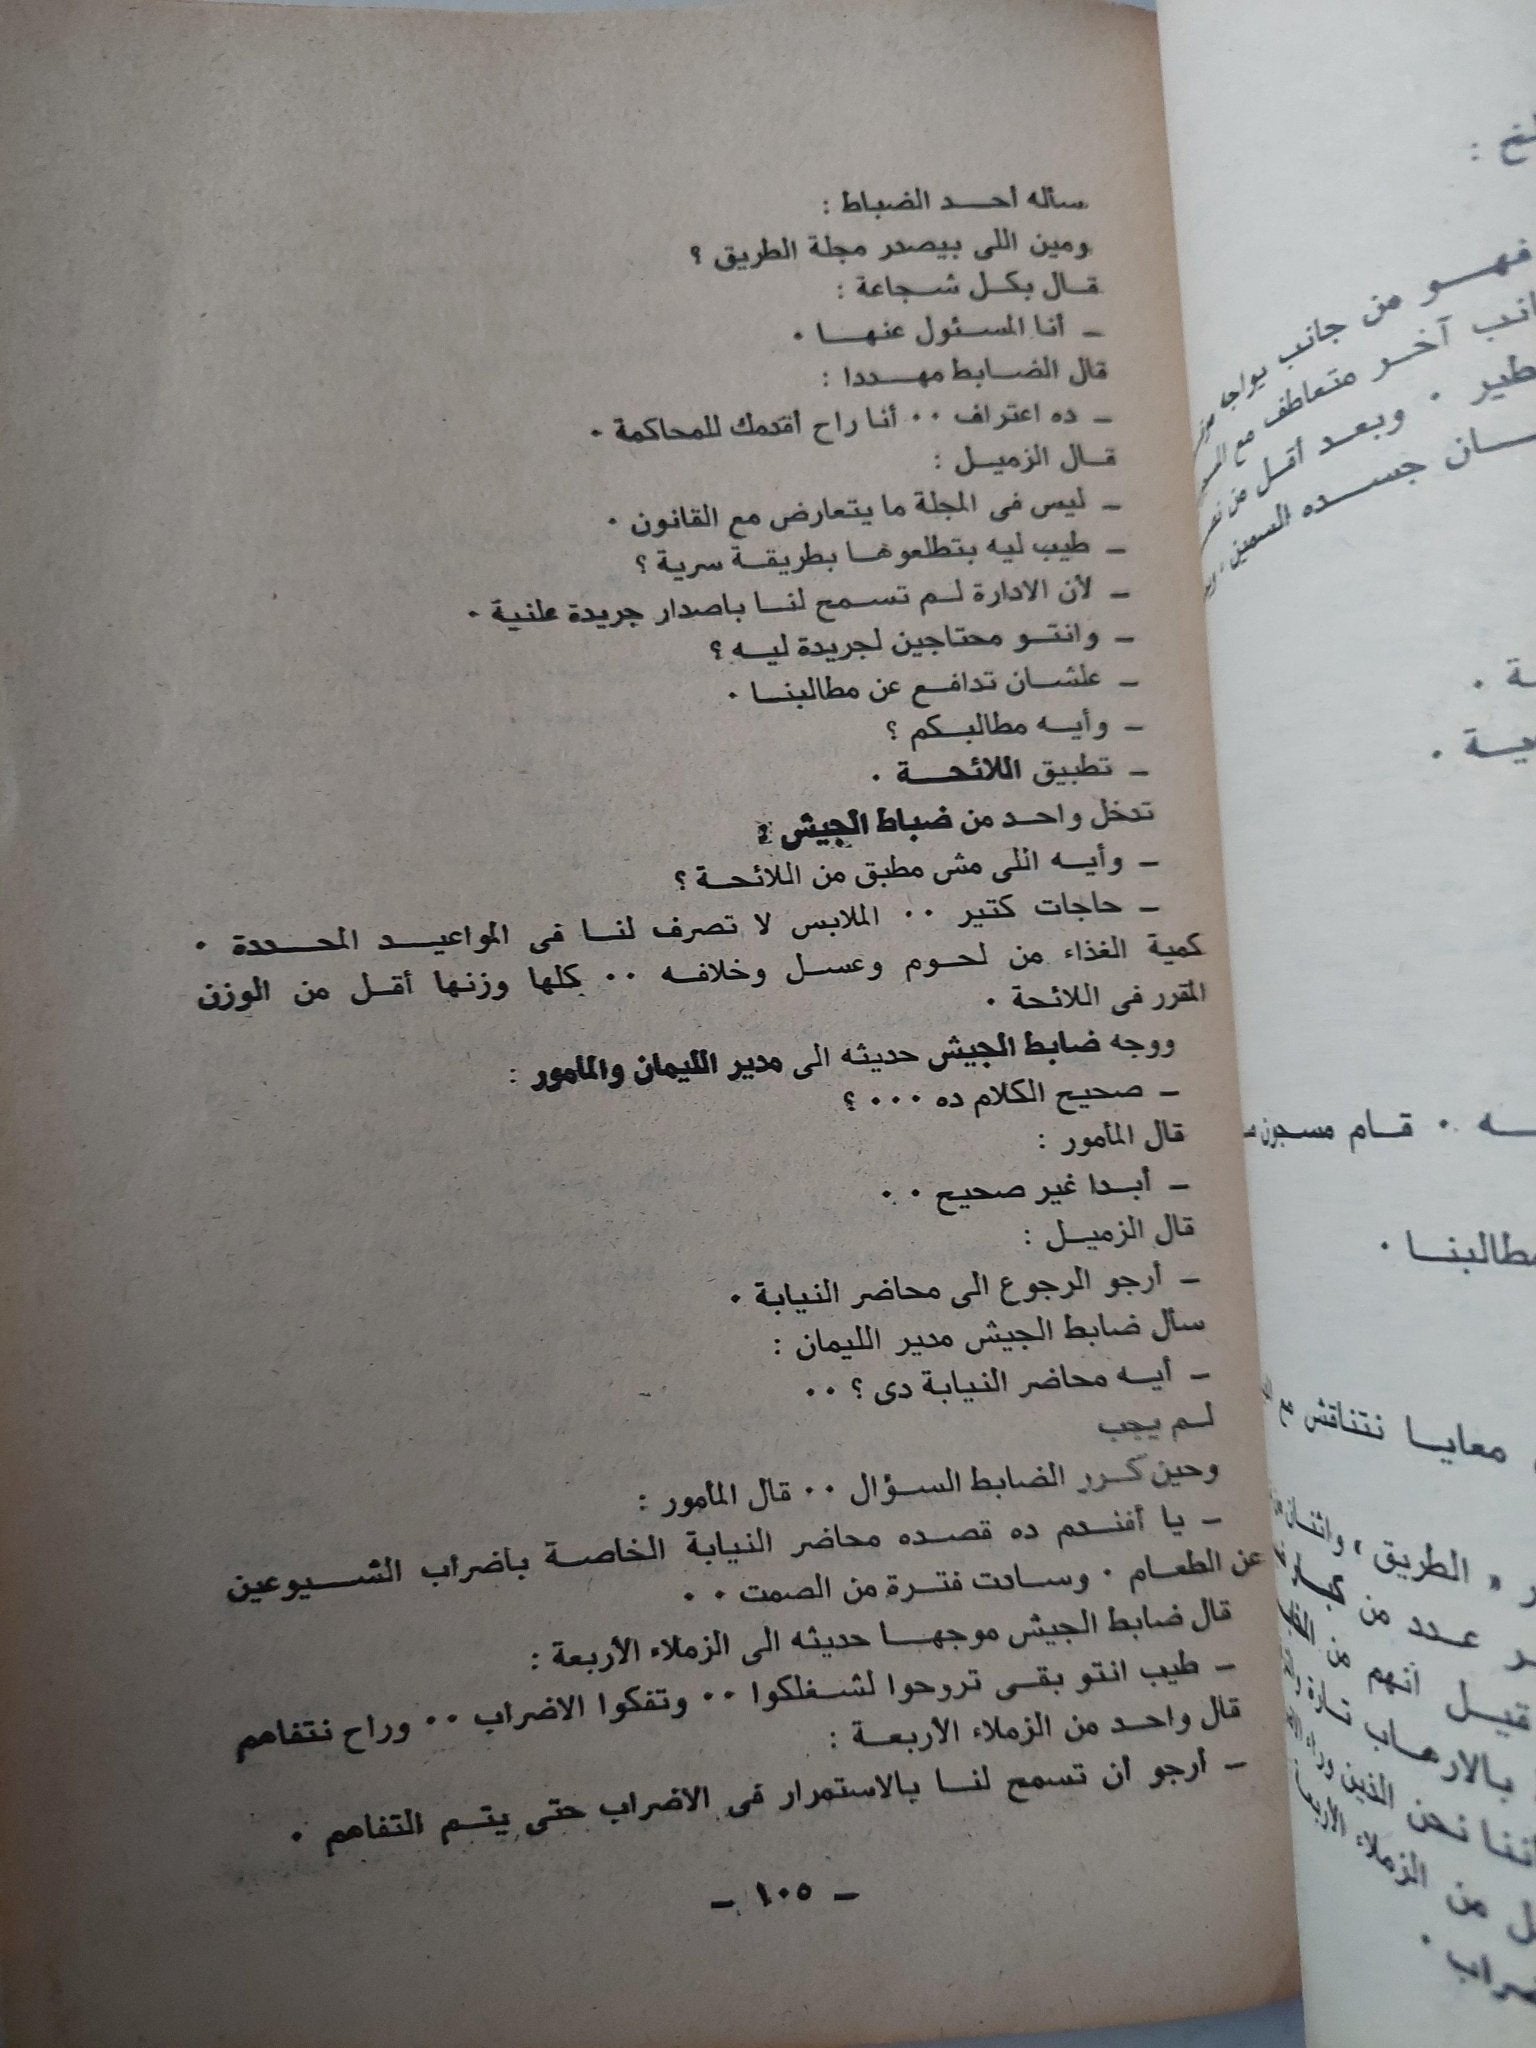 سأله أحد الضباط :
ومين اللى بيصدر مجلة الطريق ؟
قال بكل شجاعة :
ـ أنا المسئول عنها .
قال الضابط مهددا :
ـ ده اعتراف .. أنا راح أقدمك للمحاكمة .
قال الزميل :
ـ ليس فى المجلة ما يتعارض مع القانون .
ـ طيب ليه بتطلعوها بطريقة سرية ؟
ـ لأن الادارة لم تسمح لنا باصدار جريدة علنية .
ـ وانتو محتاجين لجريدة ليه ؟
ـ علشان تدافع عن مطالبنا .
ـ وأيه مطالبكم ؟
ـ تطبيق اللائحة .
تدخل واحد من ضباط الجيش :
ـ وأيه اللى مش مطبق من اللائحة ؟
ـ حاجات كتير .. الملابس لا تصرف لنا فى المواعيد المحددة .
كمية الغذاء من لحوم وعسل وخلافه .. كلها وزنها أقل من الوزن
المقرر فى اللائحة .
ووجه ضابط الجيش حديثه الى مدير الليمان والمأمور :
ـ صحيح الكلام ده ... ؟
قال المأمور :
ـ أبدا غير صحيح ..
قال الزميل :
ـ أرجو الرجوع الى محاضر النيابة .
سأل ضابط الجيش مدير الليمان :
ـ أيه محاضر النيابة دى ؟ ..
لم يجب
وحين كرر الضابط السؤال .. قال المأمور :
ـ يا أفندم ده قصده محاضر النيابة الخاصة بأضراب الشيوعين
عن الطعام . وسادت فترة من الصمت ..
قال ضابط الجيش موجها حديثه الى الزملاء الأربعة :
ـ طيب انتو بقى تروحوا لشغلكوا .. وتفكوا الاضراب .. وراح نتفاهم
قال واحد من الزملاء الأربعة :
ـ أرجو أن تسمح لنا بالاستمرار فى الأضراب حتى يتم التفاهم .
ـ ١٠٥ ـ
فهو من جانب يواجه
آخر متعاطف مع
وبعد أقل من
جسده السمين
. قام مسجون
مطالبنا .
معايا نتناقش مع
« الطريق » واثنان
عدد من
قيل أنهم من
بالارهاب تارة
نحن الذين وراء
من الزملاء الأربعة